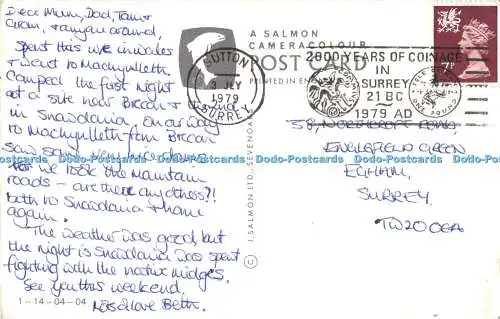 Dear Mum, Dad, Tam &
Gran, & anyone around,
Spent this w/e in Wales
& went to Machynlleth.
Camped the first night
at a site near Brecon &
in Snowdonia. On our way
to Machynlleth from Brecon
saw some very nice
as we took the mountain
roads - are there any others?!
both to Snowdonia & home
again.
The weather was good, but
the night in Snowdonia was spent
fighting with the native midges.
See you this weekend,
Lots of love Beth.
1-14-04-04
A SALMON
CAMERACOLOUR
POST CARD
PRINTED IN ENGLAND
J. SALMON LTD., SEVENOAKS
SUTTON
3 JLY
1979
SURREY
2000 YEARS OF COINAGE
IN
SURREY
21 BC
1979 AD
7P
38, NORTHCROFT ROAD,
ENGLEFIELD GREEN
EGHAM,
SURREY.
TW20 0EA
Postcards Data-Postcards Data-Postcards Data-Postcards Data-Postcards Data-Postcards